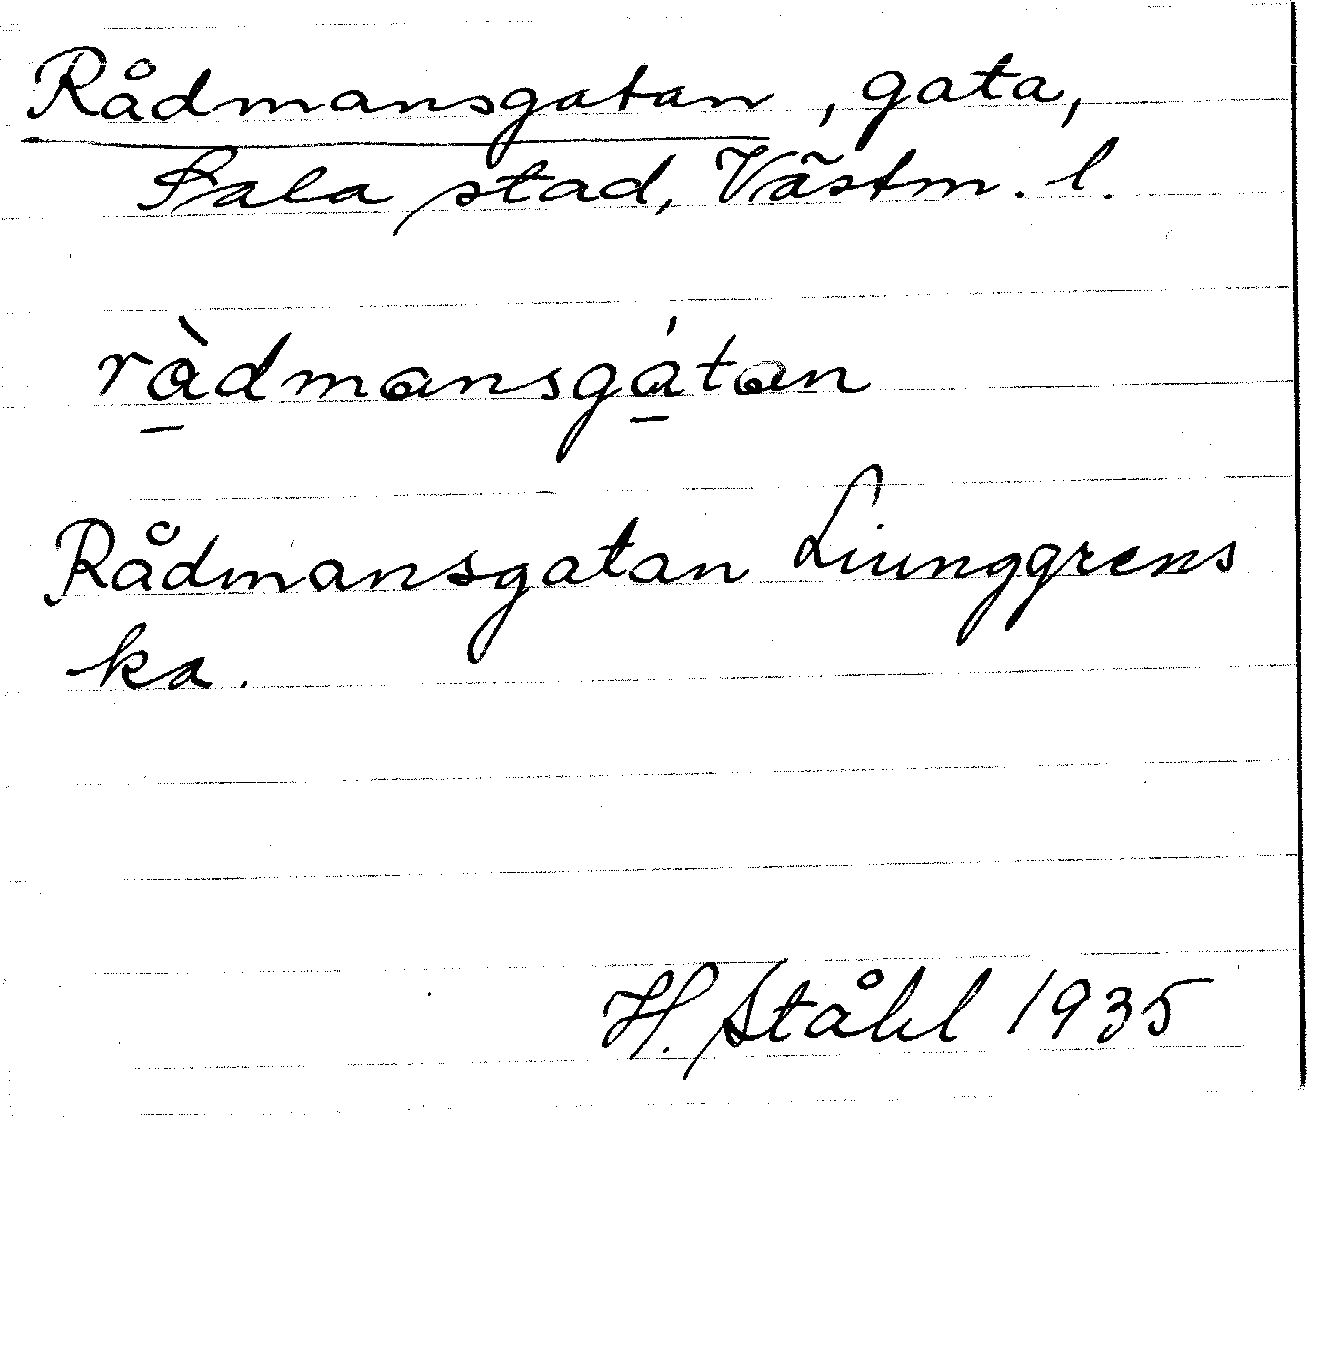 Rådmansgatan, gata,
Sala stad, Västm. l.
rå̀dmansgátan
Rådmansgatan Liunggrens
ka.
H. Ståhl 1935